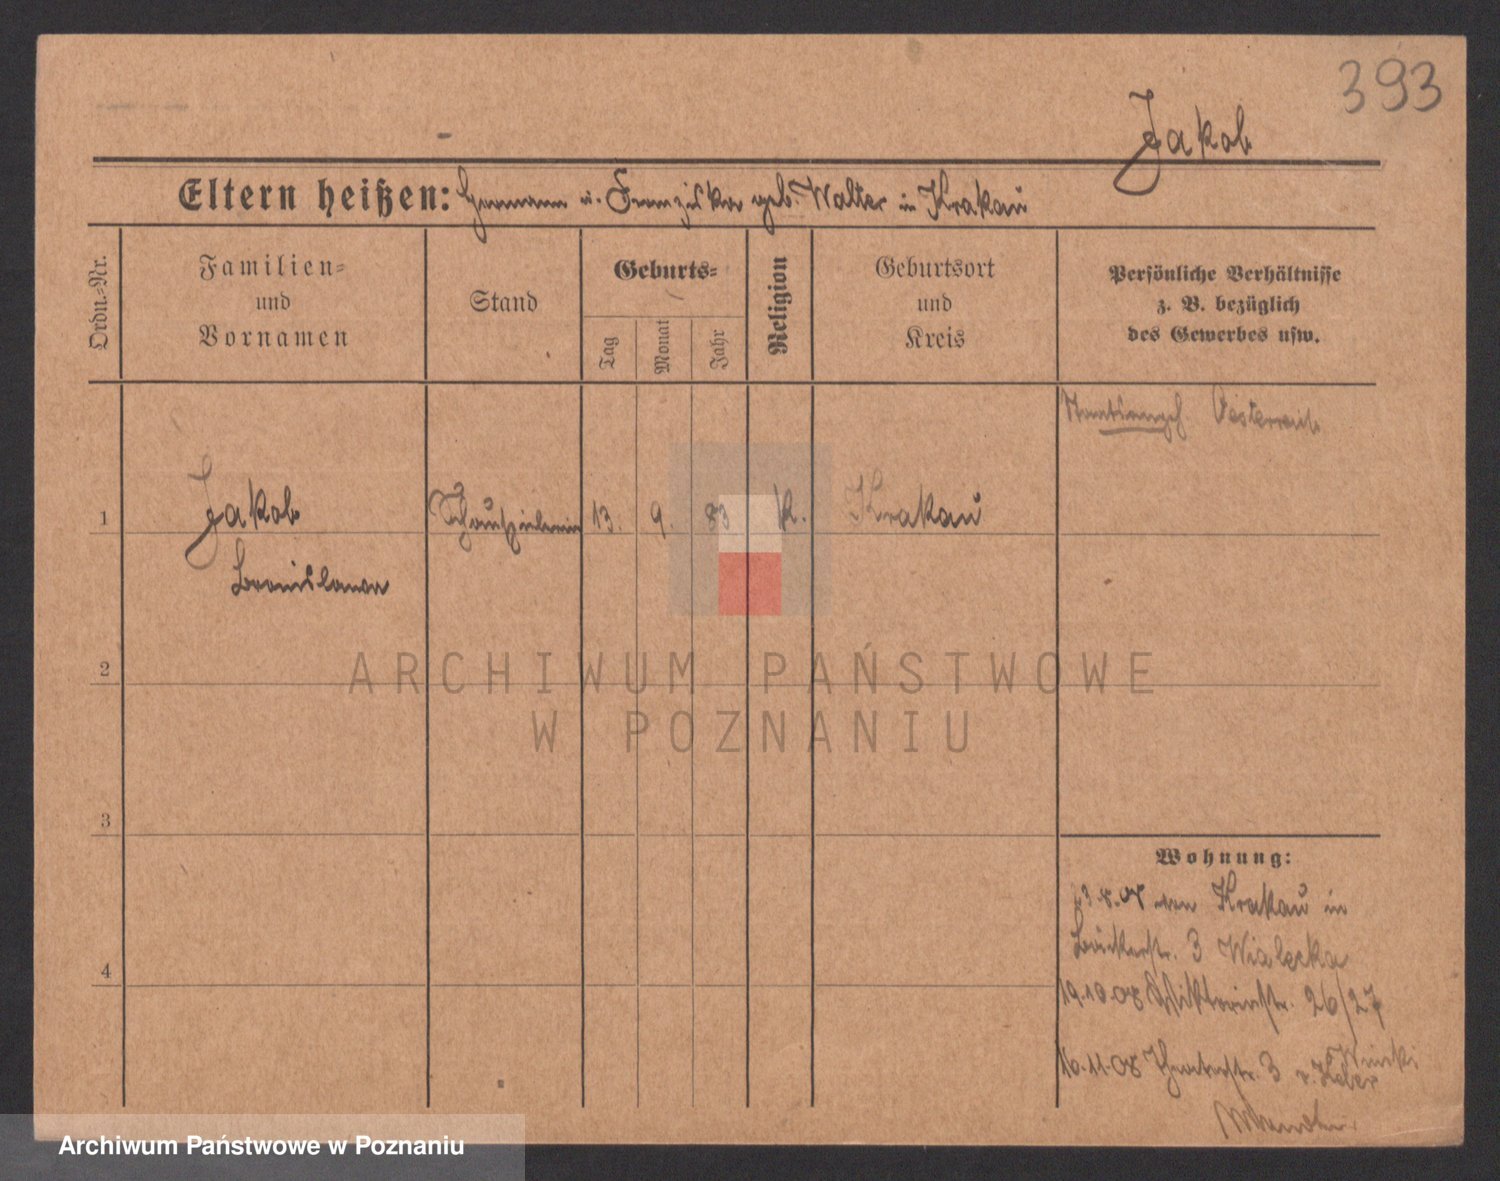 393
Jakob
Eltern heißen: Hermann u. Franziska geb. Walter in Krakau
Ordn.-Nr.
Familien-
und
Vornamen
Stand
Geburts-
Tag
Monat
Jahr
Religion
Geburtsort
und
Kreis
Persönliche Verhältnisse
z. B. bezüglich
des Gewerbes usw.
Staatsangeh. Oesterreich
1 Jakob Schauspielerin 13. 9. 83 k. Krakau
Bronislawa
2
3
4
Wohnung:
von Krakau in
Bäckerstr. 3 Wialecka
19.10.08 Viktoriastr. 26/27
16.11.08 Theaterstr. 3
ARCHIWUM PAŃSTWOWE
W POZNANIU
Archiwum Państwowe w Poznaniu